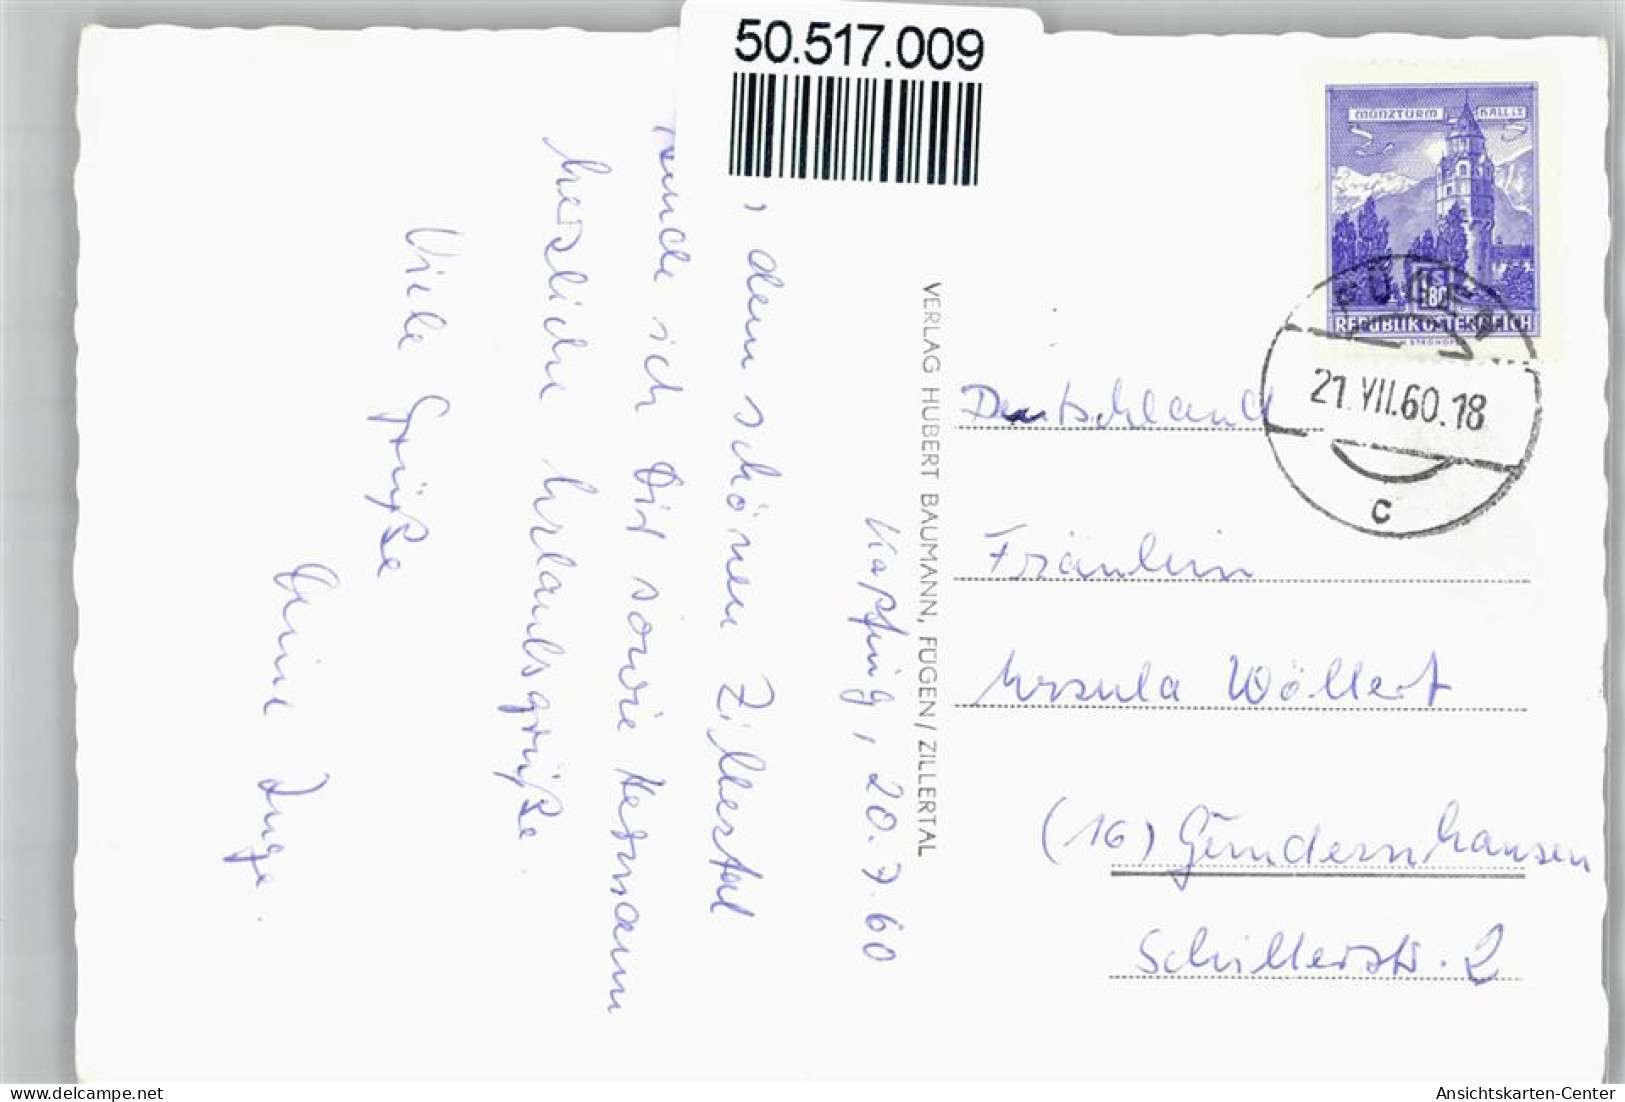 50.517.009
MÜNZTURM HALL i.T.
REPUBLIK ÖSTERREICH
21.VII.60.18
c
Kapfing, 20.7.60
, dem schönen Zillertal
sende ich Dir sowie Hermann
herzliche Urlaubsgrüße.
Viele Grüße
Deine Inge.
VERLAG HUBERT BAUMANN, FÜGEN / ZILLERTAL
Deutschland
Fräulein
Ursula Wöllert
(16) Gundernhausen
Schillerstr. 2
Ansichtskarten-Center